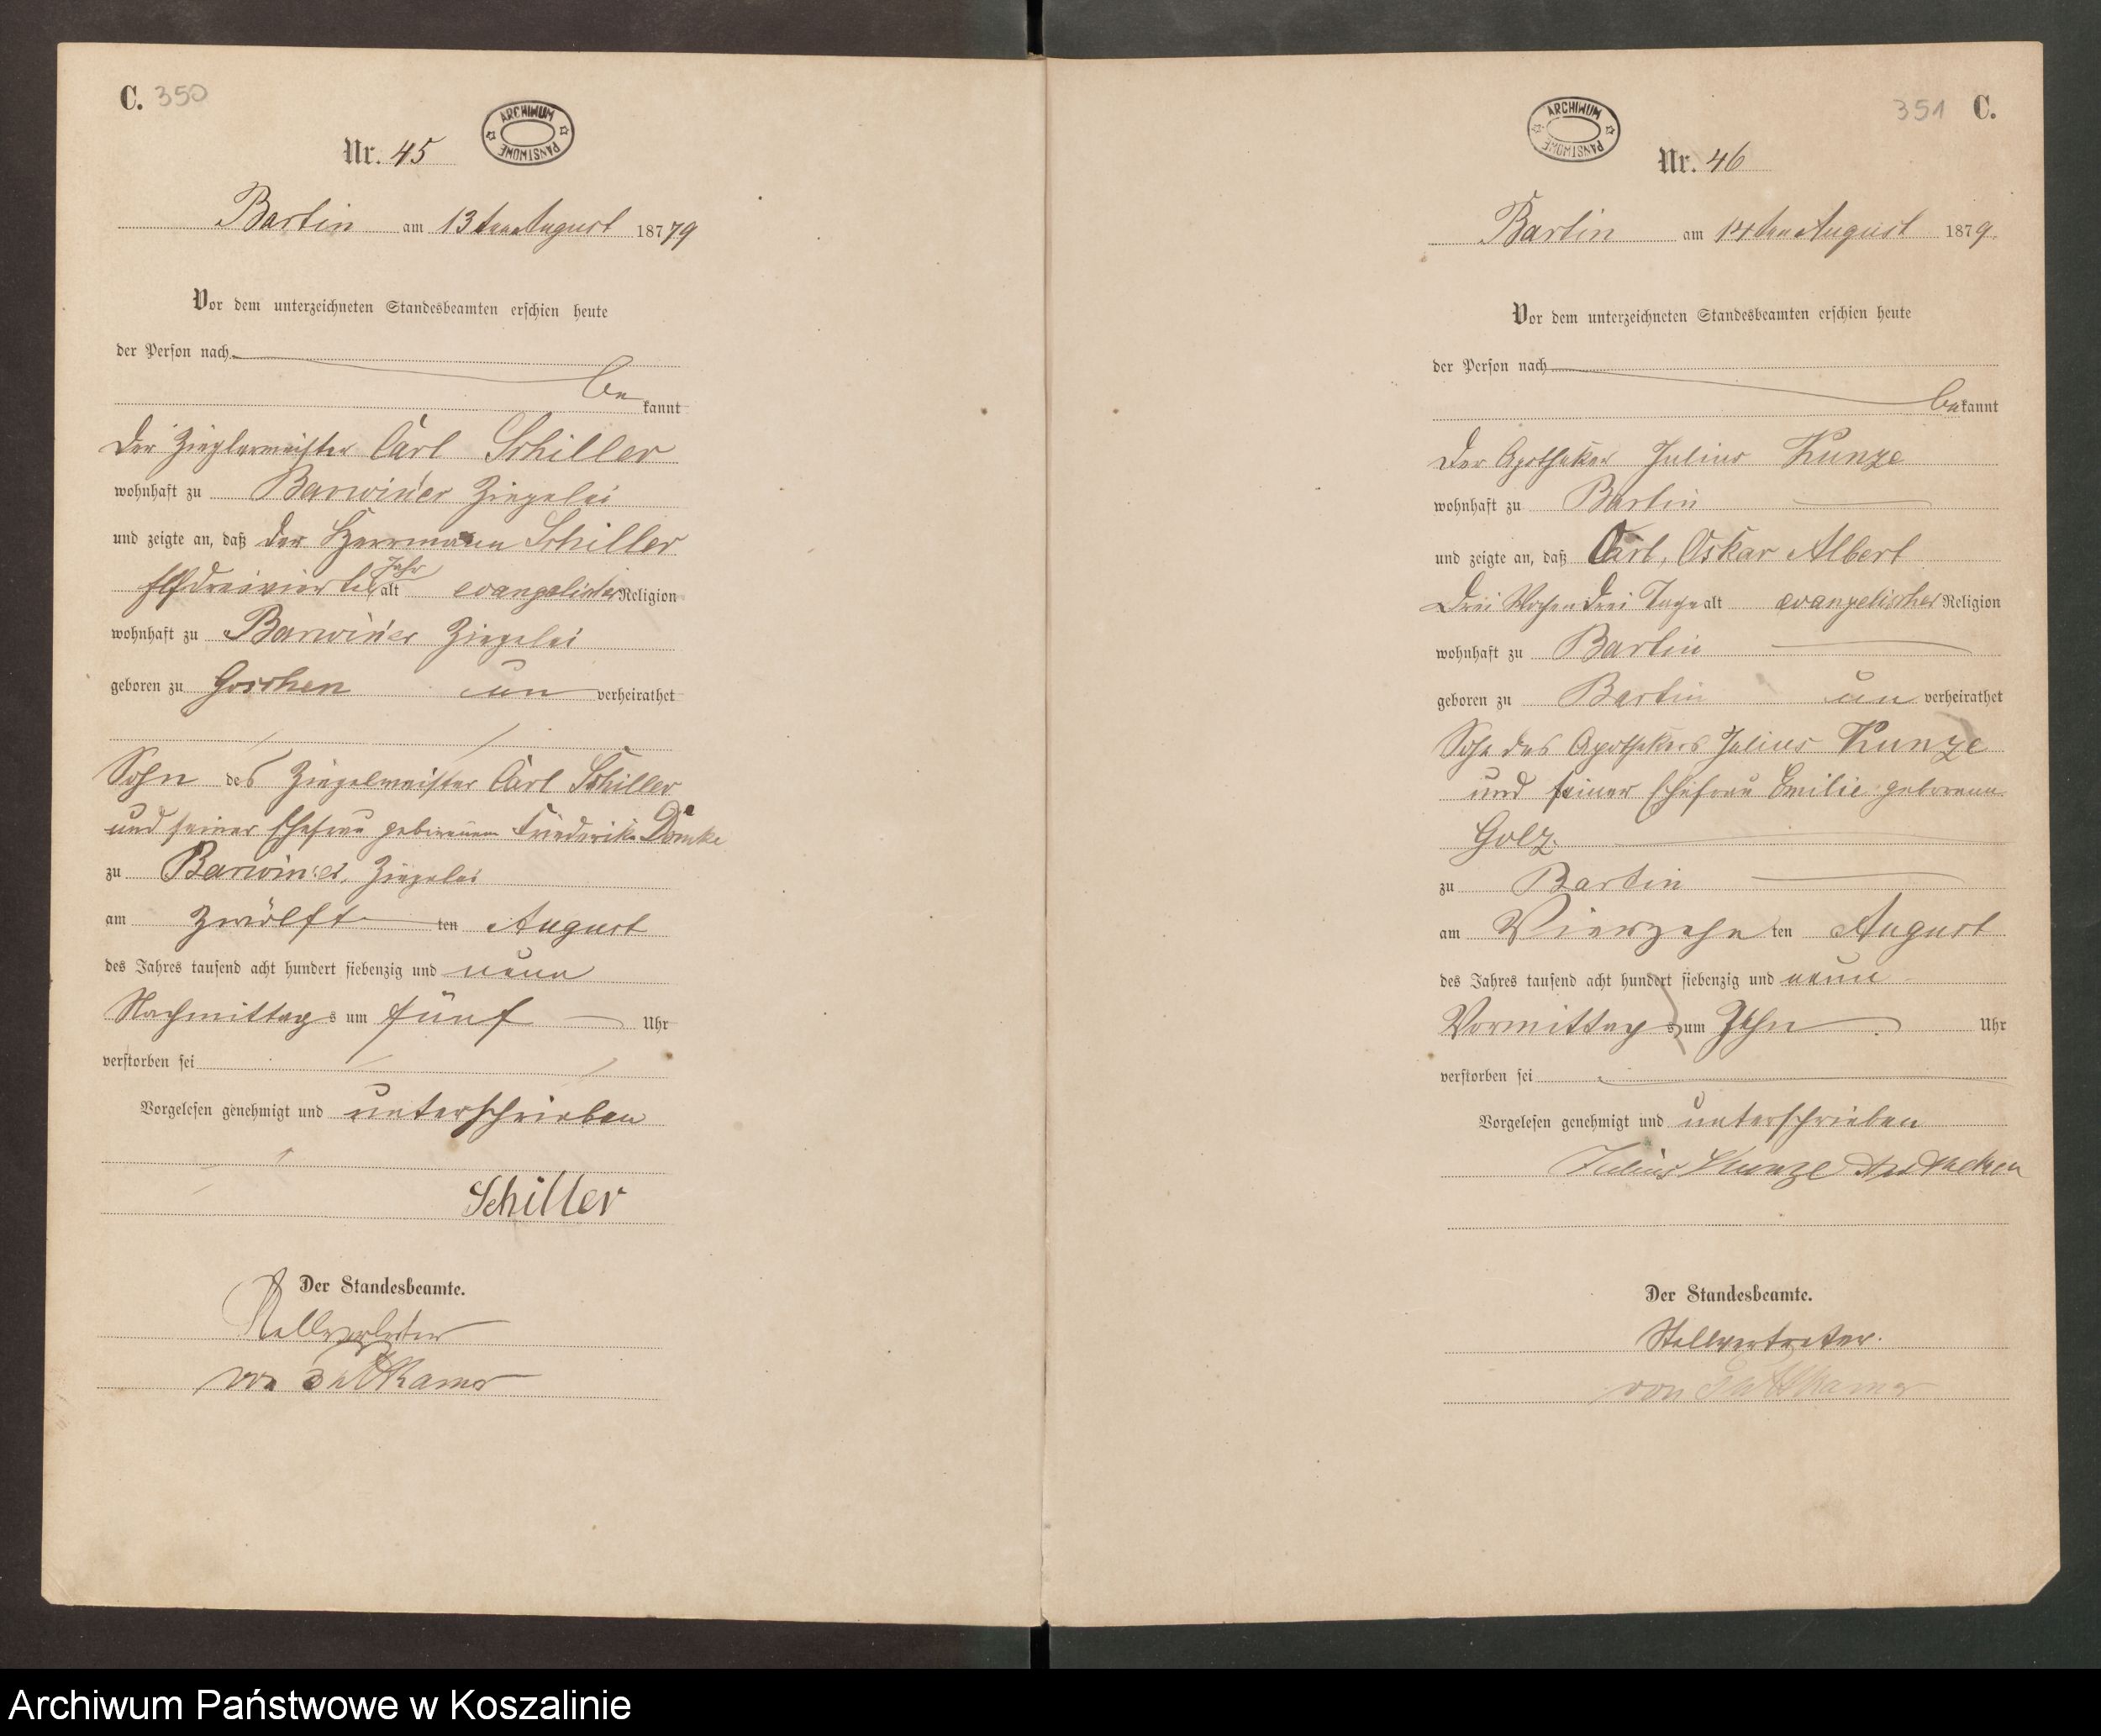 C. 350
ARCHIWUM PAŃSTWOWE
Nr. 45
Bartin am 13ten August 18779
Vor dem unterzeichneten Standesbeamten erschien heute
der Person nach
be kannt
Der Zieglermeister Carl Schiller
wohnhaft zu Barwiner Ziegelei
und zeigte an, daß der Herrmann Schiller
Jahr
elfdreiviertel alt evangelischer Religion
wohnhaft zu Barwiner Ziegelei
geboren zu un verheirathet
Sohn des Ziegelmeister Carl Schiller
und seiner Ehefrau geborenen Friederike
zu Barwiner Ziegelei
am zwölften ten August
des Jahres tausend acht hundert siebenzig und neun
Nachmittags um fünf Uhr
verstorben sei
Vorgelesen genehmigt und unterschrieben
Schiller
Der Standesbeamte.
Stellvertreter
von Puttkamer
351 C.
ARCHIWUM PAŃSTWOWE
Nr. 46
Bartin am 14ten August 1879.
Vor dem unterzeichneten Standesbeamten erschien heute
der Person nach
bekannt
Der Apotheker Julius Kunze
wohnhaft zu Bartin
und zeigte an, daß Carl, Oskar Albert
Drei Wochen drei Tage alt evangelischer Religion
wohnhaft zu Bartin
geboren zu Bartin un verheirathet
Sohn des Apothekers Julius Kunze
und seiner Ehefrau Emilie geborenen
Golz
zu Bartin
am Vierzehn ten August
des Jahres tausend acht hundert siebenzig und neun
Vormittag s um Zehn Uhr
verstorben sei
Vorgelesen genehmigt und unterschrieben
Julius Kunze Apotheker
Der Standesbeamte.
Stellvertreter.
von Puttkamer
Archiwum Państwowe w Koszalinie